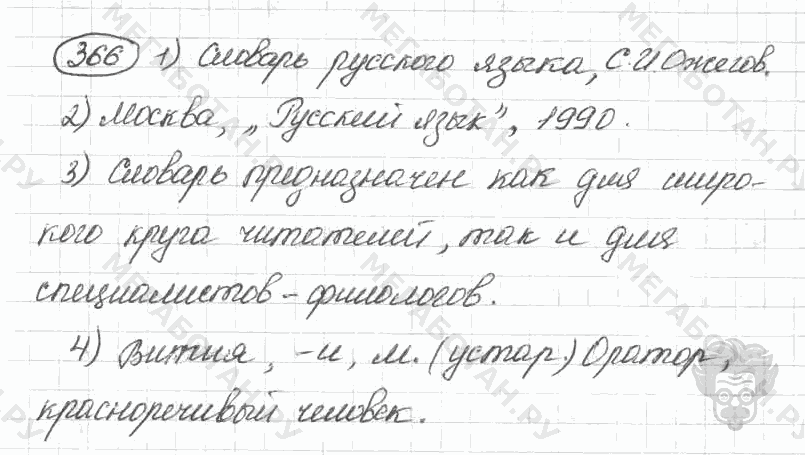 366 1) Словарь русского языка, С.И. Ожегов.
2) Москва, „Русский язык", 1990.
3) Словарь предназначен как для широ-
кого круга читателей, так и для
специалистов-филологов.
4) Вития, -и, м. (устар.) Оратор,
красноречивый человек.
МЕГАБОТАН.РУ